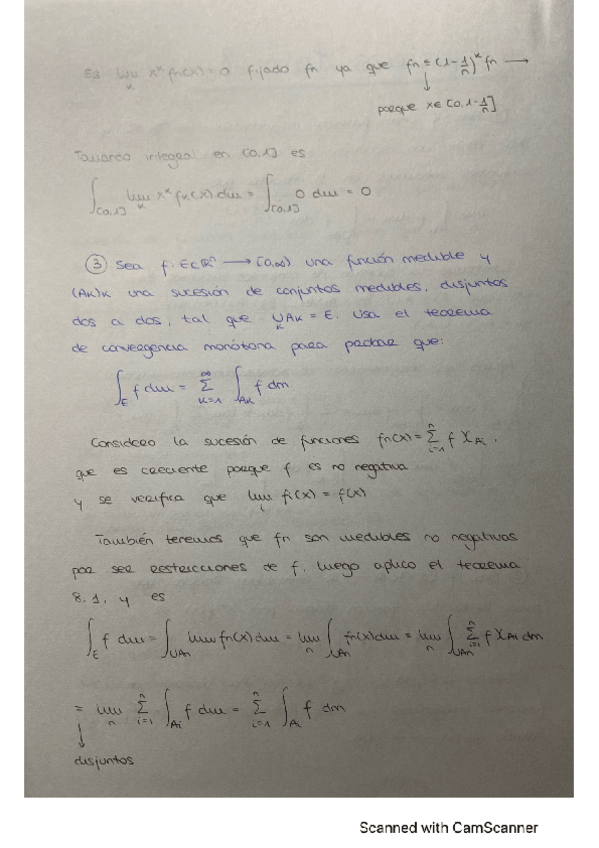 Es lim_k x^k fn(x) = 0 fijado fn ya que fn ≤ (1-1/n)^k fn →
↓
porque x∈[0,1-1/n]
Tomando integral en [0,1] es
∫_{[0,1]} lim_k x^k fn(x) dm = ∫_{[0,1]} 0 dm = 0
③ Sea f: E⊂ℝⁿ → [0,∞) una función medible y
(Ak)k una sucesión de conjuntos medibles, disjuntos
dos a dos, tal que ∪_k Ak = E. Usa el teorema
de convergencia monótona para probar que:
∫_E f dm = ∑_{k=1}^∞ ∫_{Ak} f dm
Considero la sucesión de funciones fn(x) = ∑_{i=1}^n f χ_{Ai},
que es creciente porque f es no negativa
y se verifica que lim_i fi(x) = f(x)
También tenemos que fn son medibles no negativas
por ser restricciones de f, luego aplico el teorema
8.1, y es
∫_E f dm = ∫_{∪An} lim fn(x) dm = lim_n ∫_{∪An} fn(x) dm = lim_n ∫_{∪An} ∑_{i=1}^n f χ_{Ai} dm
= lim_n ∑_{i=1}^n ∫_{Ai} f dm = ∑_{i=1}^n ∫_{Ai} f dm
↓
disjuntos
Scanned with CamScanner